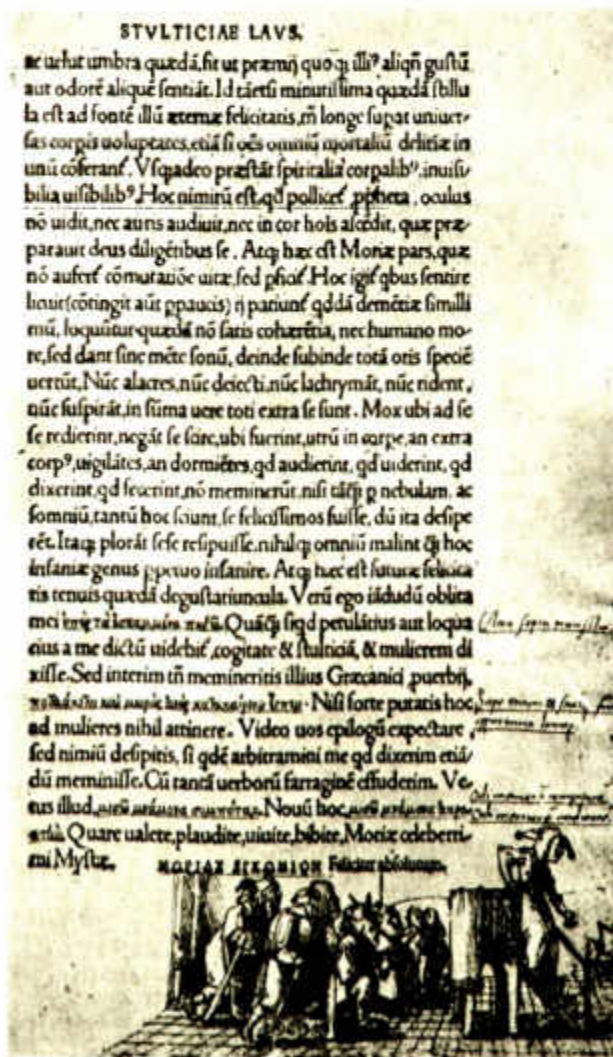 STVLTICIAE LAVS.
ac uelut umbra quædā, fit ut præmij quoqꝫ illiꝰ aliqñ gustū
aut odorē aliquē sentiāt. Id tāetsi minutissima quædā stillu
la est ad fontē illū æternæ felicitatis, tñ longe supat uniuer-
sas corpis uoluptates, etiā si oēs omniū mortaliū delitiæ in
unū cōferant̃. Vsqꝫadeo præstāt spiritalia corpalibꝰ, inuisi-
bilia uisibilibꝰ. Hoc nimirū est, qđ pollicet̃ ppheta, oculus
nō uidit, nec auris audiuit, nec in cor hoīs ascēdit, quæ præ-
parauit deus diligētibus se. Atqꝫ hæc est Moriæ pars, quæ
nō aufert̃ cōmutatiōe uitæ, sed pficit̃. Hoc igit̃ qbus sentire
licuit (cōtingit aūt ppaucis) ij patiunt̃ qddā demētiæ simili
mū, loquūtur quædā nō satis cohærētia, nec humano mo-
re, sed dant sine mēte sonū, deinde subinde totā oris speciē
uertūt, Nūc alacres, nūc deiecti, nūc lachrymāt, nūc rident,
nūc suspirāt, in sūma uere toti extra se sunt. Mox ubi ad se
se redierint, negāt se scire, ubi fuerint, utrū in corpe, an extra
corpꝰ, uigilātes, an dormiētes, qd audierint, qd uiderint, qd
dixerint, qd fecerint, nō meminerūt, nisi tāqꝫ p nebulam, ac
somniū, tantū hoc sciunt, se felicissimos fuisse, dū ita desipe
rēt. Itaqꝫ plorāt sese resipuisse, nihilqꝫ omniū malint qꝫ hoc
insaniæ genus ppetuo insanire. Atqꝫ hæc est futuræ felicita
tis tenuis quædā degustatiuncula. Verū ego iādudū oblita
mei Quāqꝫ siqd petulātius aut loqua
cius a me dictū uidebit̃, cogitate & stulticiā, & mulierem di
xisse. Sed interim tñ memineritis illius Græcanici puerbij,
Nisi forte putatis hoc
ad mulieres nihil attinere. Video uos epilogū expectare,
sed nimiū desipitis, si qdē arbitramini me qd dixerim etiā
dū meminisse, Cū tantā uerborū farraginē effuderim. Ve-
tus illud, Nouū hoc,
Quare ualete, plaudite, uiuite, bibite, Moriæ celeberri
mi Mystæ.
ΜΟΡΙΑΣ ΕΓΚΩΜΙΟΝ Feliciter absolutum.